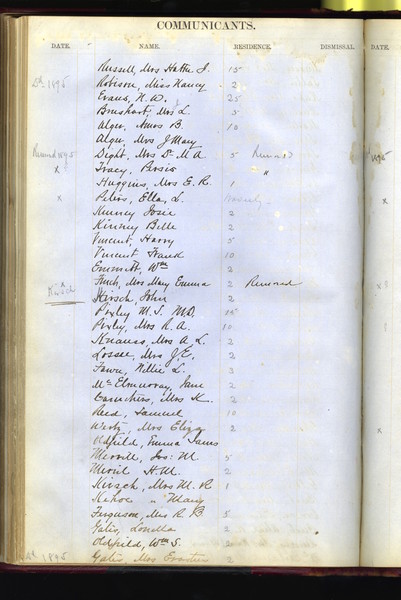 COMMUNICANTS.
DATE. NAME. RESIDENCE. DISMISSAL. DATE.
Russell, Mrs Hattie J. 15
1895 Robison, Miss Nancy 2
Evans, N. W. 25
Brushart, Mrs L. 5
Alger, Amos B. 10
Alger, Mrs J May
Removed 1895 Dight, Mrs Dr M A 5 Removed
x Tracy, Persis "
Huggins, Mrs G. R. 1
x Peters, Ella, L.
Kinney Josie 2
Kinney Belle 2
Vincent, Harry 5
Vincent Frank 10
Emmitt, Wm 2
x Finch, Mrs May Emma 2 Removed
Hirsch, John 2
Pixley M. S. M.D. 15
Pixley, Mrs R. A. 10
Knauss, Mrs A L. 2
Mrs J. E. 2
Fawn, Willie L. 3
McElmurray, Jane 2
Caruthers, Mrs K. 2
Reed, Samuel 10
Wertz, Mrs Eliza 2
Oldfield, Emma James
Merrill, Jos: M 5
Merril H. M. 2
Kirsch, Mrs M. R 1
Kehoe " Mary
Ferguson, Mrs R B 5
Gates, Louella 2
Oldfield, Wm S. 2
1895 Gates, Mrs 2